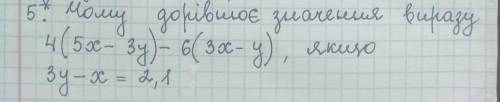 5.* Чому дорівнює значення виразу
4(5x - 3y) - 6(3x - y), якщо
3y - x = 2,1